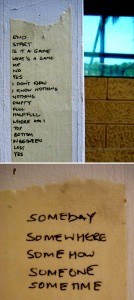 END
START
IS IT A GAME
WHAT'S A GAME
NO
YES
I DON'T KNOW
I KNOW NOTHING
NOTHING
EMPTY
FULL
HALF FULL
WHERE AM I
TOP
BOTTOM
EVERGREEN
LOST
YES
SOMEDAY
SOMEWHERE
SOMEHOW
SOMEONE
SOMETIME